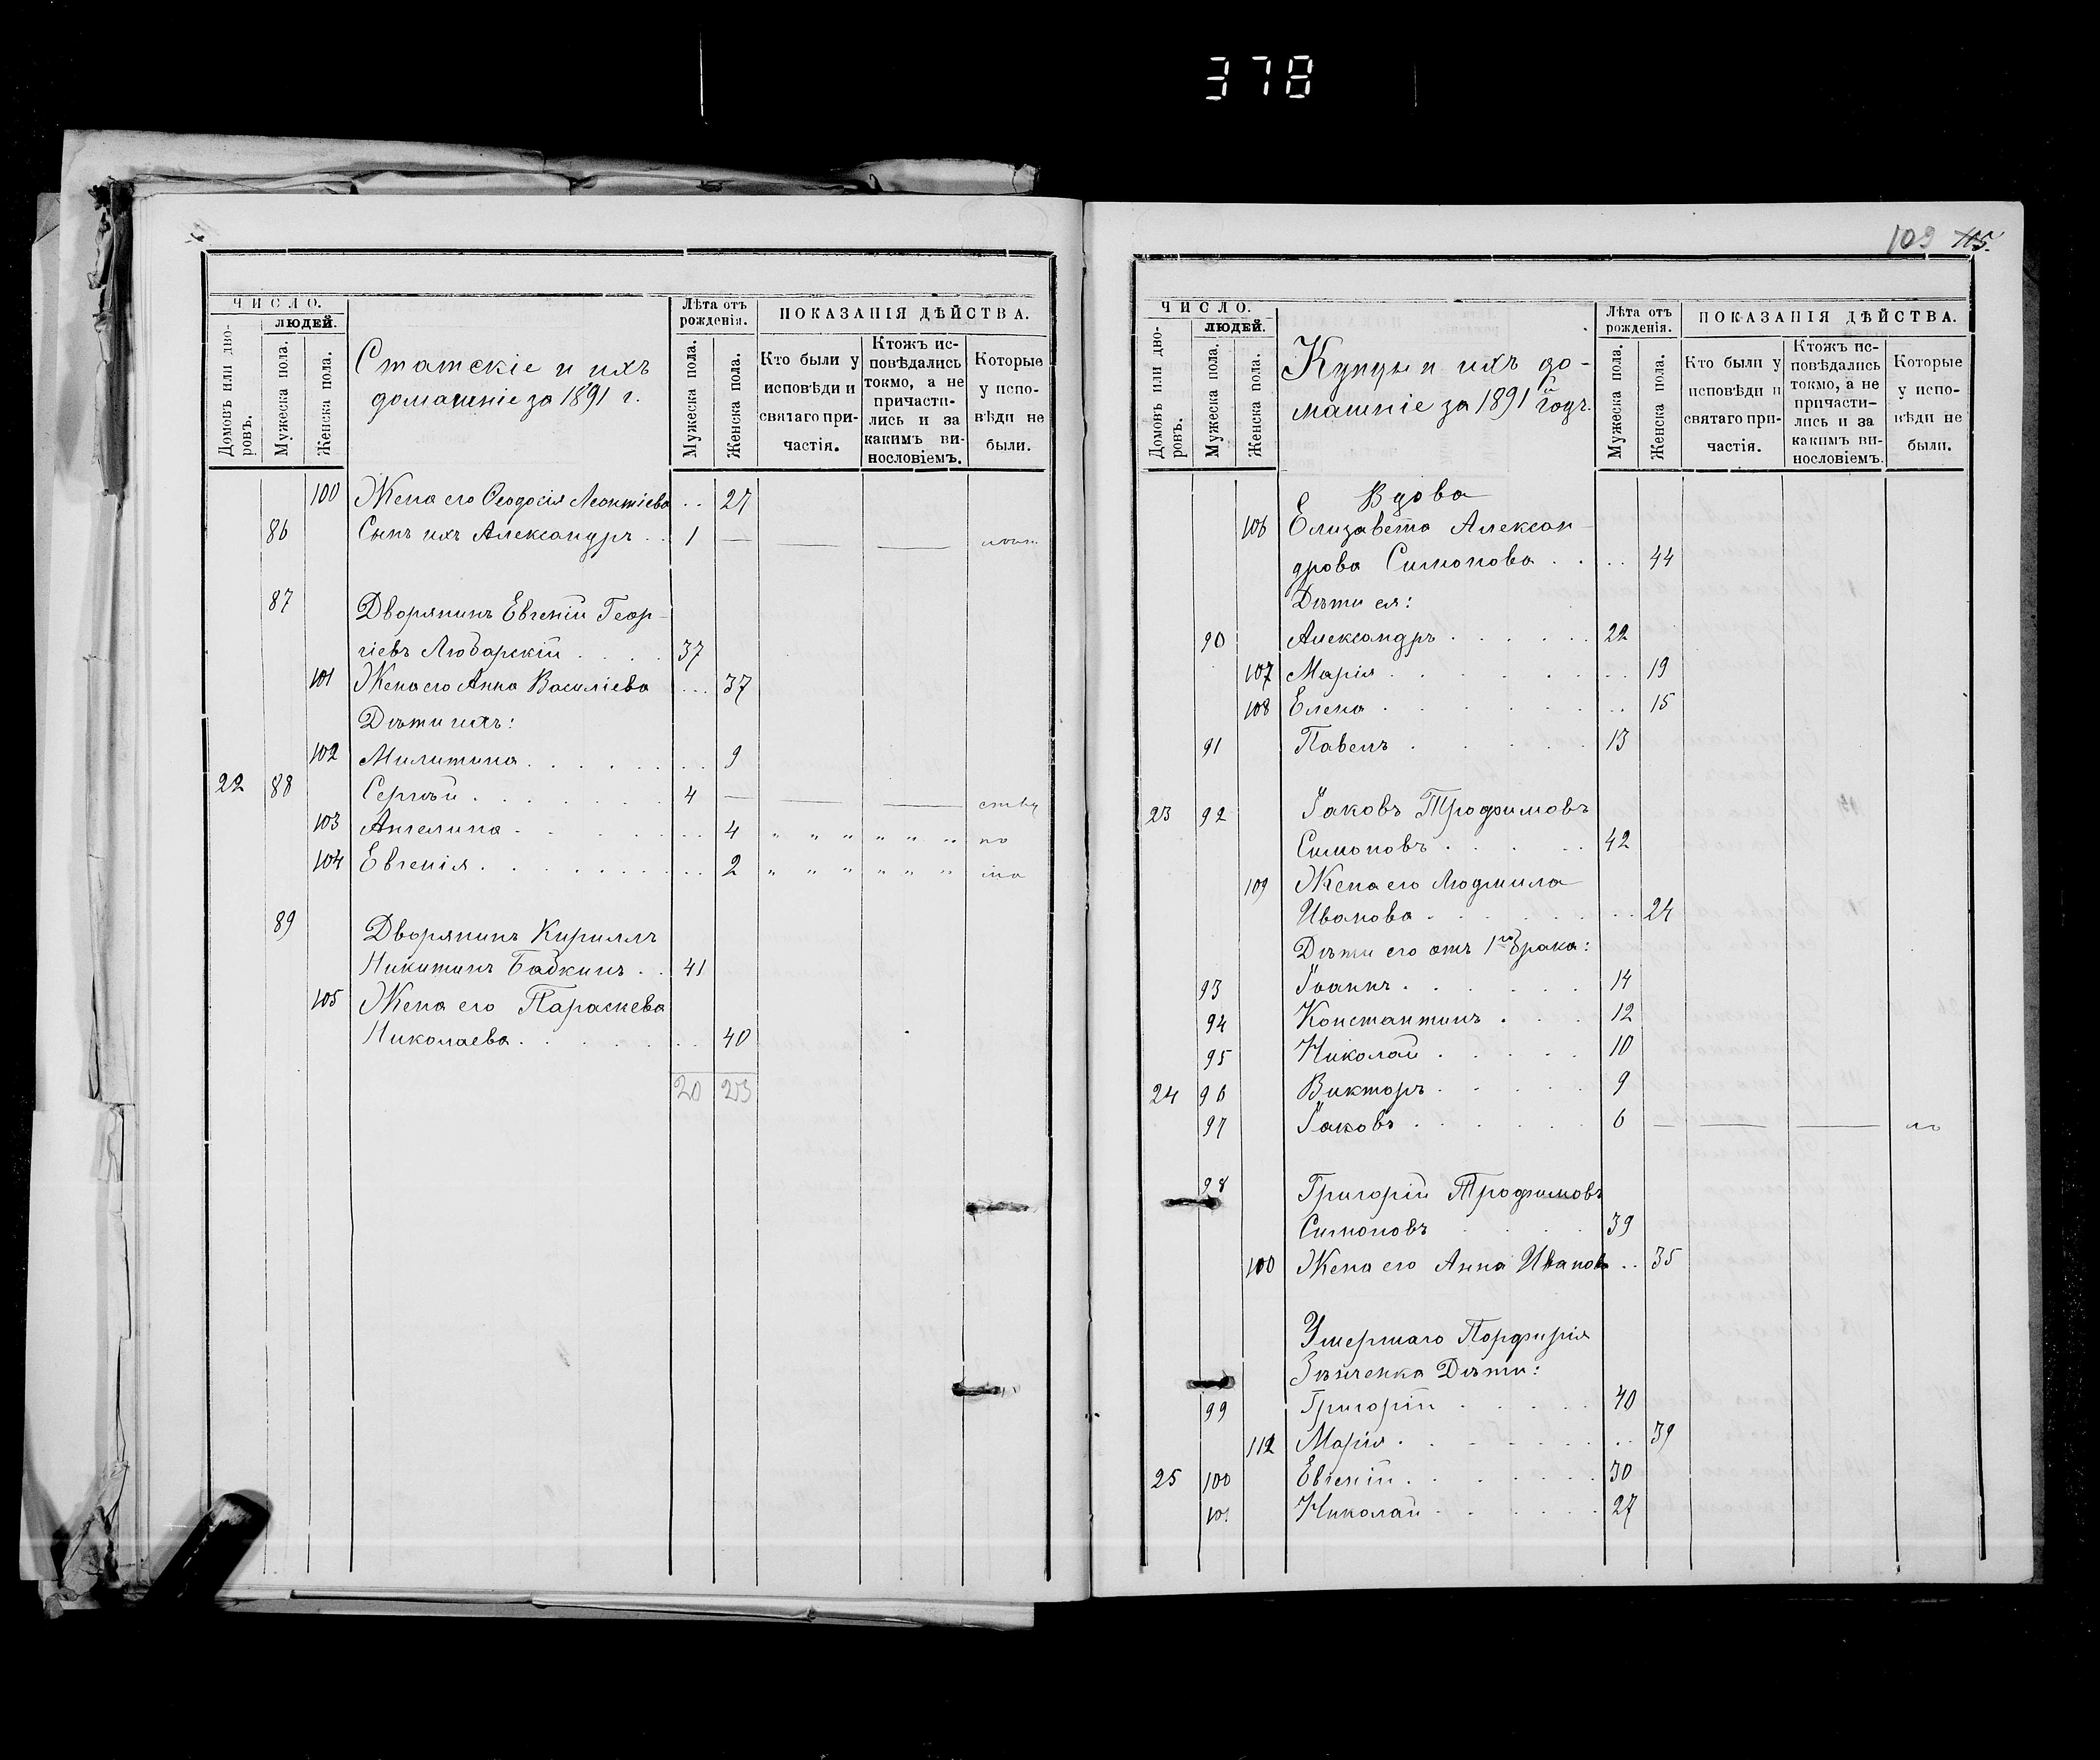 378
ЧИСЛО.
людей.
Домовъ или дво-
ровъ.
Мужеска пола.
Женска пола.
Статскіе и ихъ
домашніе за 1891 г.
Лѣта отъ
рожденія.
Мужеска пола.
Женска пола.
ПОКАЗАНІЯ ДѢЙСТВА.
Кто были у
исповѣди и
святаго при-
частія.
Ктожъ ис-
повѣдались
токмо, а не
причасти-
лись и за
какимъ ви-
нословіемъ.
Которые
у испо-
вѣди не
были.
100 Жена его Ѳеодосія Леонтіева . . 27
86 Сынъ ихъ Александръ . . 1 — — —
87 Дворянинъ Евгеній Геор-
гіевъ Любарскій . . . . 37
101 Жена его Анна Василіева . . . 37
Дѣти ихъ:
102 Милитина . . . . . . . . 9
22 88 Сергѣй . . . . . . . 4 — — —
103 Ангелина . . . . . . . 4 " " " " " "
104 Евгенія . . . . . . . . . 2 " " " " " "
89 Дворянинъ Кириллъ
Никитинъ Бабкинъ . . 41
105 Жена его Параскева
Николаева . . . . . . . 40
20 23
109 115.
ЧИСЛО.
людей.
Домовъ или дво-
ровъ.
Мужеска пола.
Женска пола.
Купцы и ихъ до-
машніе за 1891й годъ.
Лѣта отъ
рожденія.
Мужеска пола.
Женска пола.
ПОКАЗАНІЯ ДѢЙСТВА.
Кто были у
исповѣди и
святаго при-
частія.
Ктожъ ис-
повѣдались
токмо, а не
причасти-
лись и за
какимъ ви-
нословіемъ.
Которые
у испо-
вѣди не
были.
Вдова
106 Елизавета Алексан-
дрова Симонова . . . . 44
Дѣти ея:
90 Александръ . . . . . . 22
107 Марія . . . . . . . . 19
108 Елена . . . . . . . . 15
91 Павелъ . . . . . 13
23 92 Іаковъ Трофимовъ
Симоновъ . . . . . 42
109 Жена его Людмила
Иванова . . . . . . . . 24
Дѣти его отъ 1го брака:
93 Іоаннъ . . . . . . 14
94 Константинъ . . . 12
95 Николай . . . . . 10
24 96 Викторъ . . . . . 9
97 Іаковъ . . . . . . 6 — — —
98 Григорій Трофимовъ
Симоновъ . . . . 39
100 Жена его Анна Иванов . . 35
Умершаго Порфирія
Дѣти:
99 Григорій . . . . . 40
112 Марія . . . . . . . . 39
25 100 Евгеній . . . . . . 30
101 Николай . . . . . . 27